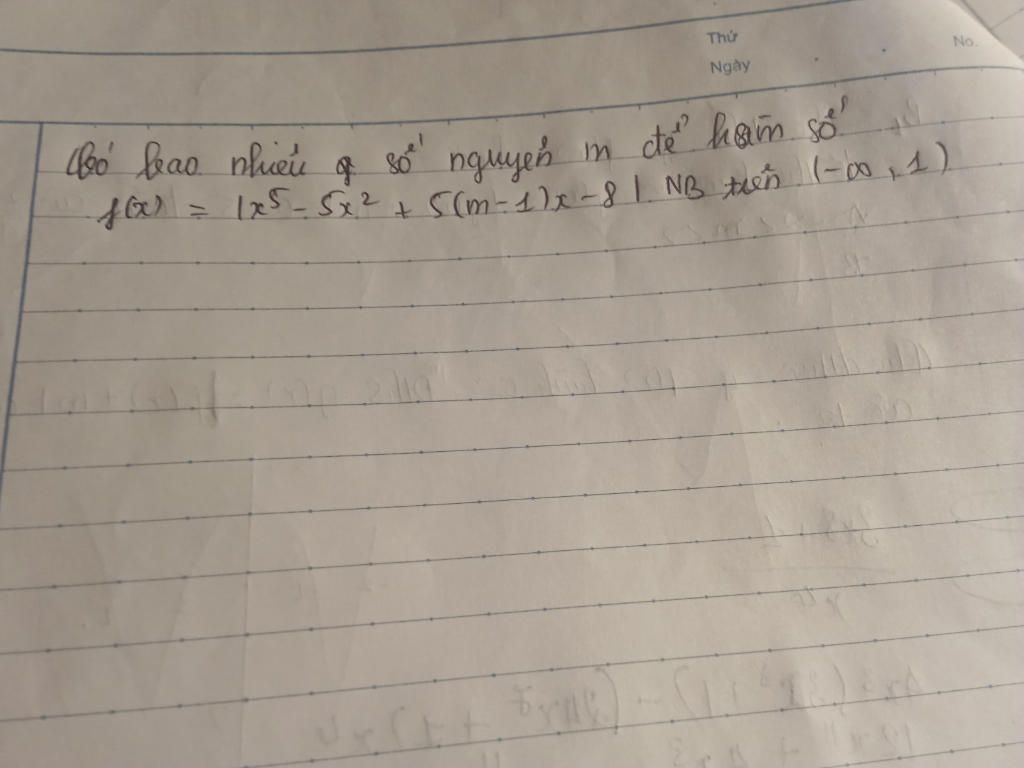 Thứ
No.
Ngày
Có bao nhiêu số nguyên m để hàm số
f(x) = |x⁵ - 5x² + 5(m-1)x - 8| NB trên (-∞, 1)